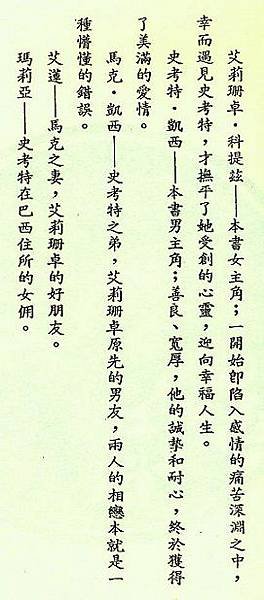 艾莉珊卓・科提茲——本書女主角；一開始即陷入感情的痛苦深淵之中，
幸而遇見史考特，才撫平了她受創的心靈，迎向幸福人生。
史考特・凱西——本書男主角；善良、寬厚，他的誠摯和耐心，終於獲得
了美滿的愛情。
馬克・凱西——史考特之弟，艾莉珊卓原先的男友，兩人的相戀本就是一
種懵懂的錯誤。
艾蓮——馬克之妻，艾莉珊卓的好朋友。
瑪莉亞——史考特在巴西住所的女佣。